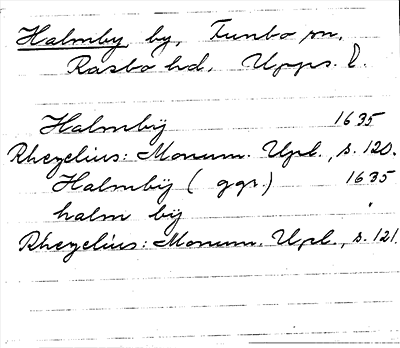 Halmby by, Tunbo sn,
Rasbo hd, Upps. l.
Halmbÿ 1635
Rhezelius: Monum. Upl., s. 120.
Halmbÿ ( ggr.) 1635
halm bÿ "
Rhezelius: Monum. Upl., s. 121.